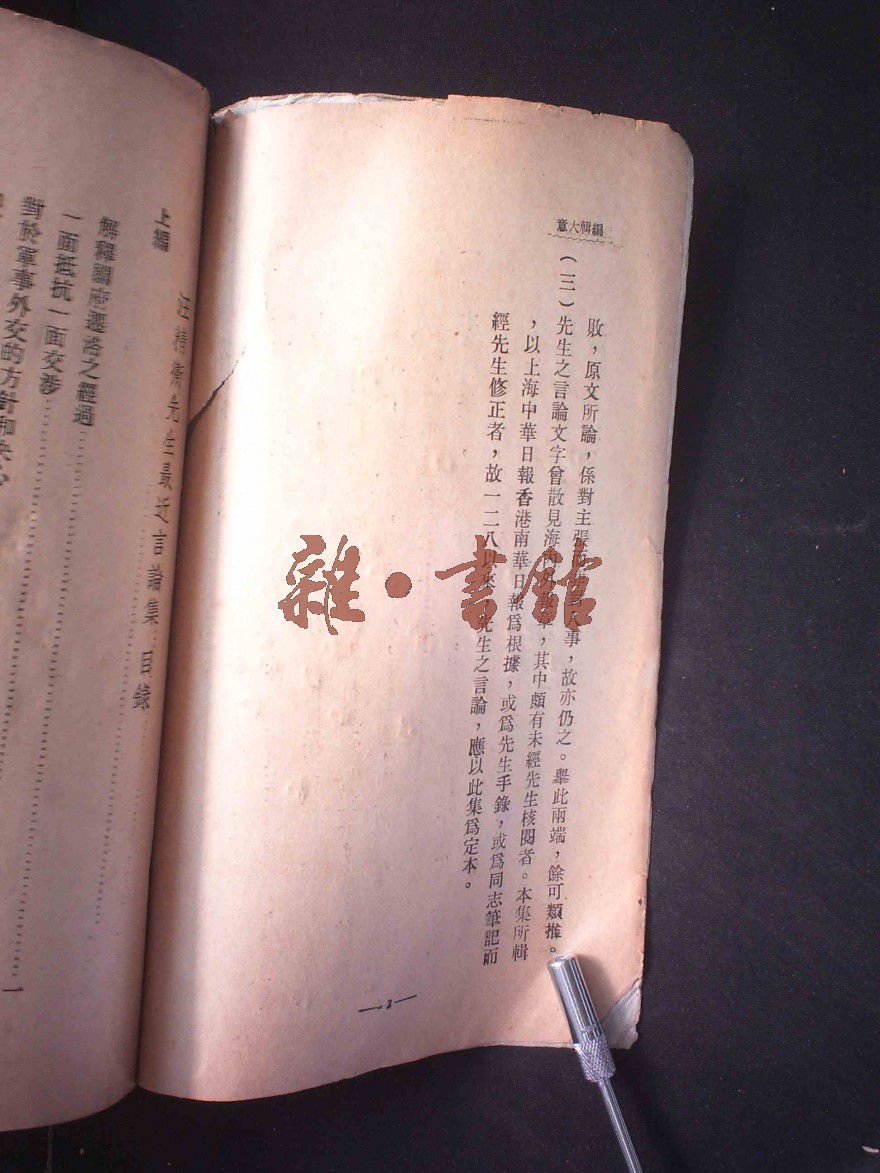 意大輯編
敗，原文所論，係對主張而事，故亦仍之。舉此兩端，餘可類推。
（三）先生之言論文字曾散見海，其中頗有未經先生核閱者。本集所輯
，以上海中華日報香港南華日報爲根據，或爲先生手錄，或爲同志筆記而
經先生修正者，故一二八以來先生之言論，應以此集爲定本。
—2—
雜·書館
汪精衛先生最近言論集 目錄
上編
解釋國府遷洛之經過
一面抵抗一面交涉
對於軍事外交的方針和決心
一